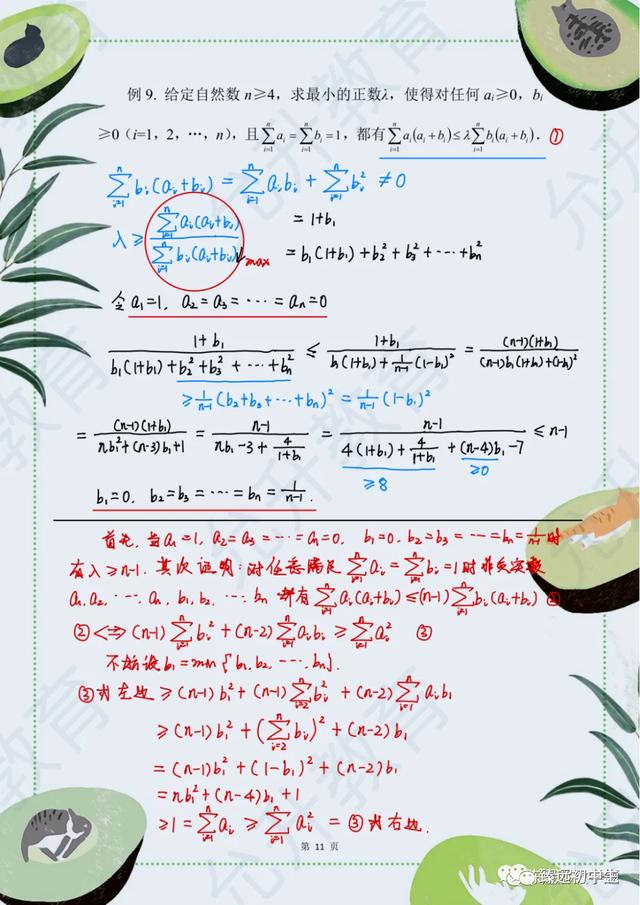 例 9. 给定自然数 n≥4，求最小的正数λ，使得对任何 aᵢ≥0，bᵢ
≥0（i=1，2，…，n），且∑ᵢ₌₁ⁿ aᵢ=∑ᵢ₌₁ⁿ bᵢ=1，都有∑ᵢ₌₁ⁿ aᵢ(aᵢ+bᵢ)≤λ∑ᵢ₌₁ⁿ bᵢ(aᵢ+bᵢ). ①
∑ᵢ₌₁ⁿ bᵢ(aᵢ+bᵢ) = ∑ᵢ₌₁ⁿ aᵢbᵢ + ∑ᵢ₌₁ⁿ bᵢ² ≠0
λ ≥ (∑ᵢ₌₁ⁿ aᵢ(aᵢ+bᵢ))/(∑ᵢ₌₁ⁿ bᵢ(aᵢ+bᵢ)) max
= 1+b₁
= b₁(1+b₁)+b₂²+b₃²+⋯+bₙ²
令 a₁=1, a₂=a₃=⋯=aₙ=0
(1+b₁)/(b₁(1+b₁)+b₂²+b₃²+⋯+bₙ²) ≤ (1+b₁)/(b₁(1+b₁)+1/(n-1)(1-b₁)²) = ((n-1)(1+b₁))/((n-1)b₁(1+b₁)+(1-b₁)²)
≥1/(n-1)(b₂+b₃+⋯+bₙ)² = 1/(n-1)(1-b₁)²
= ((n-1)(1+b₁))/(nb₁²+(n-3)b₁+1) = (n-1)/(nb₁-3+4/(1+b₁)) = (n-1)/(4(1+b₁)+4/(1+b₁)+(n-4)b₁-7) ≤ n-1
≥8 ≥0
b₁=0, b₂=b₃=⋯=bₙ=1/(n-1).
首先, 当a₁=1, a₂=a₃=⋯=aₙ=0, b₁=0, b₂=b₃=⋯=bₙ=1/(n-1)时
有λ≥n-1. 其次证明: 对任意满足∑ᵢ₌₁ⁿ aᵢ=∑ᵢ₌₁ⁿ bᵢ=1时非负实数
a₁,a₂,⋯,aₙ, b₁,b₂,⋯,bₙ 都有∑ᵢ₌₁ⁿ aᵢ(aᵢ+bᵢ)≤(n-1)∑ᵢ₌₁ⁿ bᵢ(aᵢ+bᵢ) ②
②<=>(n-1)∑ᵢ₌₁ⁿ bᵢ²+(n-2)∑ᵢ₌₁ⁿ aᵢbᵢ≥∑ᵢ₌₁ⁿ aᵢ² ③
不妨设b₁=min{b₁,b₂,⋯,bₙ}.
③式左边≥(n-1)b₁²+(n-1)∑ᵢ₌₂ⁿ bᵢ²+(n-2)∑ᵢ₌₁ⁿ aᵢb₁
≥(n-1)b₁²+(∑ᵢ₌₂ⁿ bᵢ)²+(n-2)b₁
=(n-1)b₁²+(1-b₁)²+(n-2)b₁
=nb₁²+(n-4)b₁+1
≥1=∑ᵢ₌₁ⁿ aᵢ≥∑ᵢ₌₁ⁿ aᵢ²=③式右边.
第 11 页
臻远初中生
允升教育
允升教育
允升教育